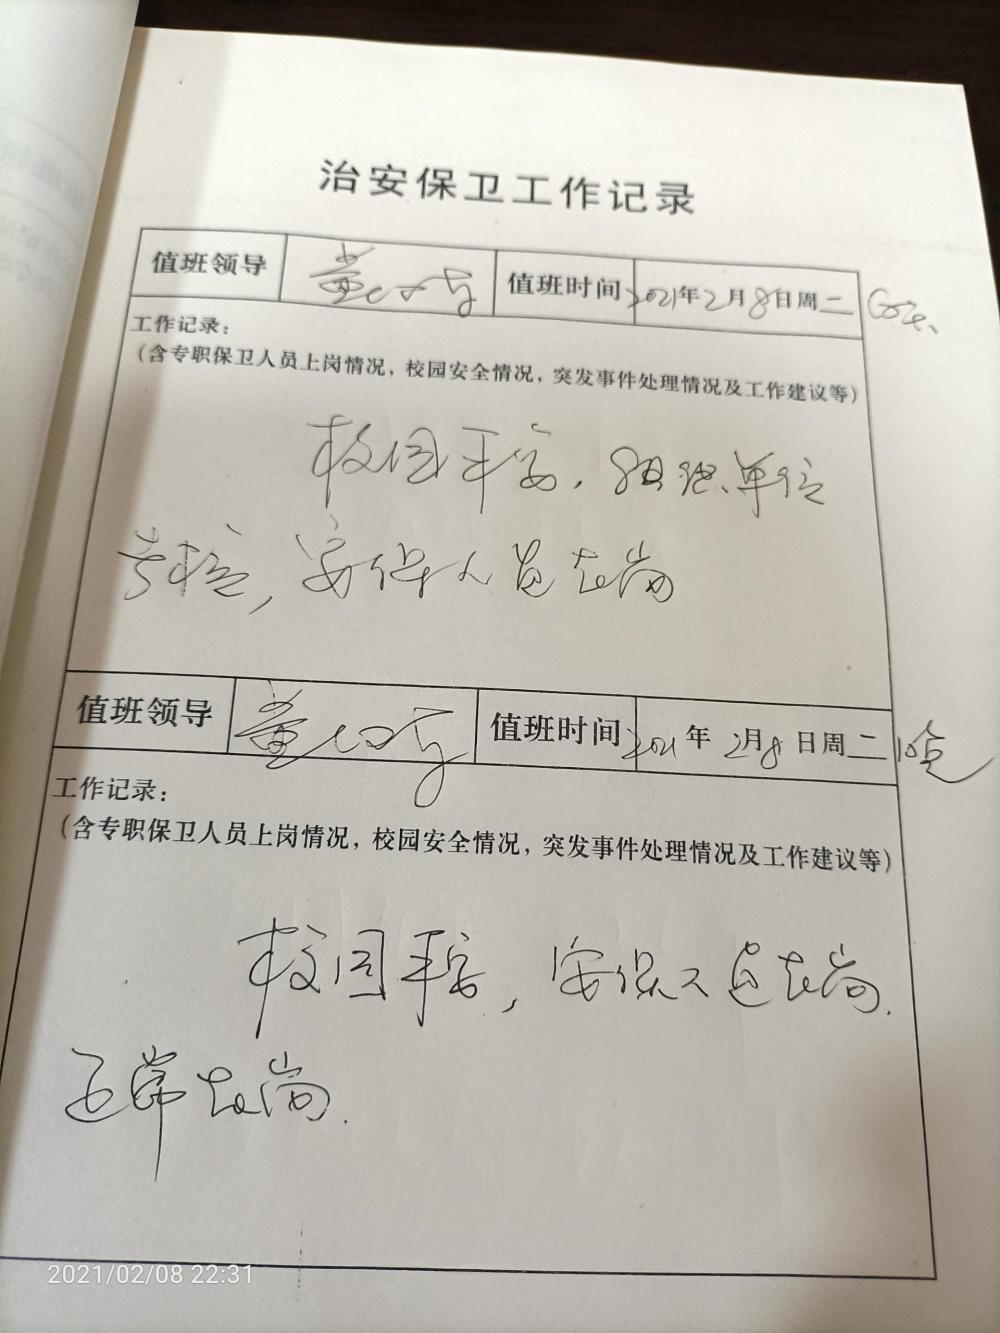 治安保卫工作记录
值班领导 值班时间 2021年2月8日周二
工作记录：
（含专职保卫人员上岗情况，校园安全情况，突发事件处理情况及工作建议等）
校园平安，组织单位
考核，安保人员在岗
值班领导 值班时间 2021年2月8日周二 晚
工作记录：
（含专职保卫人员上岗情况，校园安全情况，突发事件处理情况及工作建议等）
校园平安，安保人员在岗．
正常在岗．
2021/02/08 22:31